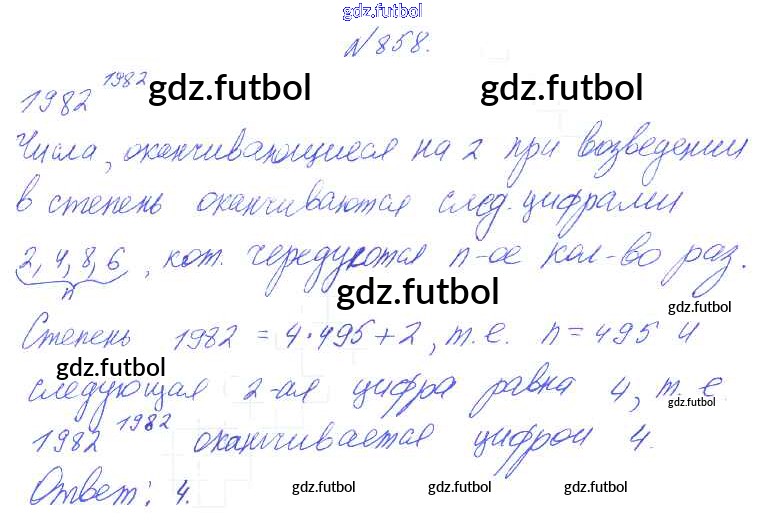 gdz.futbol
№858.
1982^1982 gdz.futbol gdz.futbol
Числа, оканчивающиеся на 2 при возведении
в степень оканчиваются след. цифрами
2, 4, 8, 6, кот. чередуются n-ое кол-во раз.
n
gdz.futbol gdz.futbol
Степень 1982 = 4·495+2, т.е. n=495 и
gdz.futbol
следующая 2-ая цифра равна 4, т.е
gdz.futbol
1982^1982 оканчивается цифрой 4.
Ответ: 4.
gdz.futbol gdz.futbol gdz.futbol